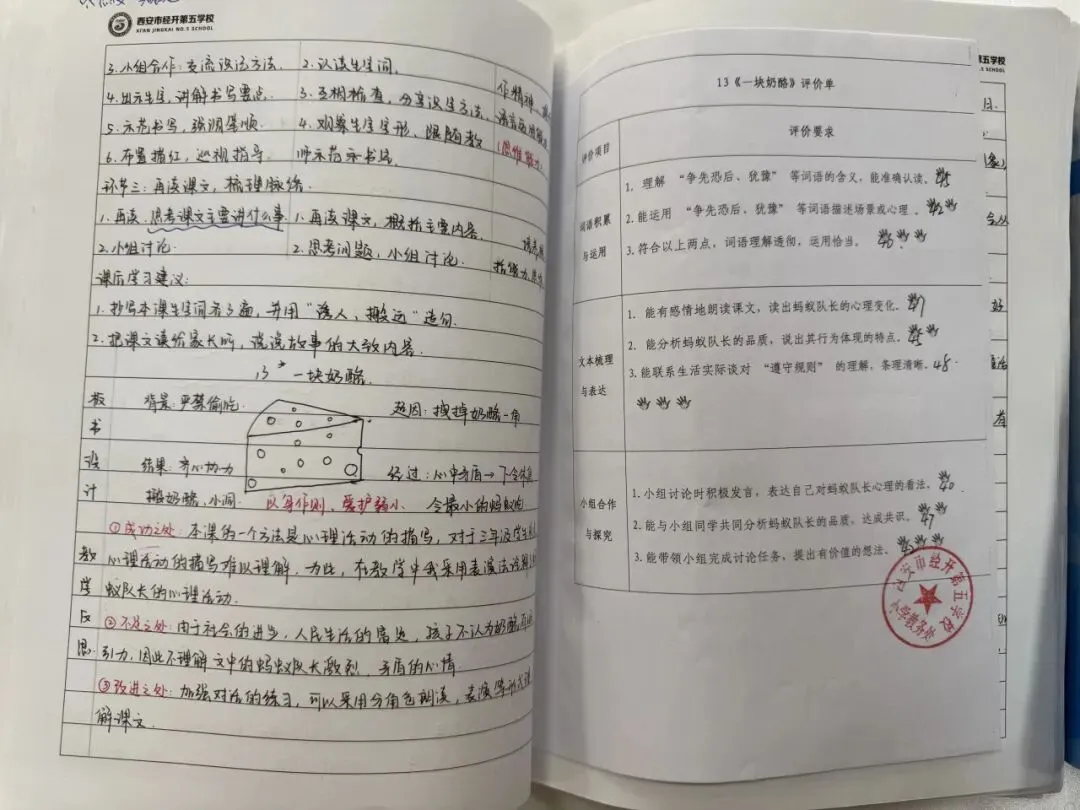 西安市经开第五学校
XI'AN JINGKAI NO.5 SCHOOL
3.小组合作:交流识记方法. 2.认读生字词.
4.出示生字,讲解书写要点. 3.互相检查,分享识字方法.
5.示范书写,强调笔顺. 4.观察生字字形,跟随教
6.布置描红,巡视指导. 师示范书写.
作精神
(思维能力)
环节三:再读课文,梳理脉络.
1.再读,思考课文主要讲什么事 1.再读课文,概括主要内容.
2.小组讨论. 2.思考问题,小组讨论.
课后学习建议:
1.抄写本课生字词各3遍,并用“诱人、搬运”造句.
2.把课文读给家长听,说说故事的大致内容.
板书设计
13* 一块奶酪.
背景:严禁偷吃 起因:拽掉奶酪一角
结果:齐心协力 经过:心中矛盾→下令休息
搬奶酪、小洞. 以身作则、爱护弱小. 令最小的蚂蚁吃
教学反思
①成功之处:本课的一个方法是心理活动的描写,对于三年级学生
心理活动的描写难以理解,为此,在教学中我采用表演法
蚁队长的心理活动.
②不足之处:由于社会的进步,人民生活的提高,孩子不认为奶酪
引力,因此不理解文中的蚂蚁队长激烈、矛盾的心情.
③改进之处:加强对话的练习,可以采用分角色朗读,表演等形式
解课文.
13《一块奶酪》评价单
评价项目 评价要求
词语积累与运用
1. 理解 “争先恐后、犹豫” 等词语的含义,能准确认读。45
2.能运用 “争先恐后、犹豫” 等词语描述场景或心理 。42
3.符合以上两点,词语理解透彻,运用恰当。40
文本梳理与表达
1. 能有感情地朗读课文,读出蚂蚁队长的心理变化。47
2. 能分析蚂蚁队长的品质,说出其行为体现的特点。45
3.能联系生活实际谈对 “遵守规则” 的理解,条理清晰。48
小组合作与探究
1.小组讨论时积极发言,表达自己对蚂蚁队长心理的看法。40
2.能与小组同学共同分析蚂蚁队长的品质,达成共识。47
3.能带领小组完成讨论任务,提出有价值的想法。
西安市经开第五学校
小学教务处
第五学校
.5 SCHOOL